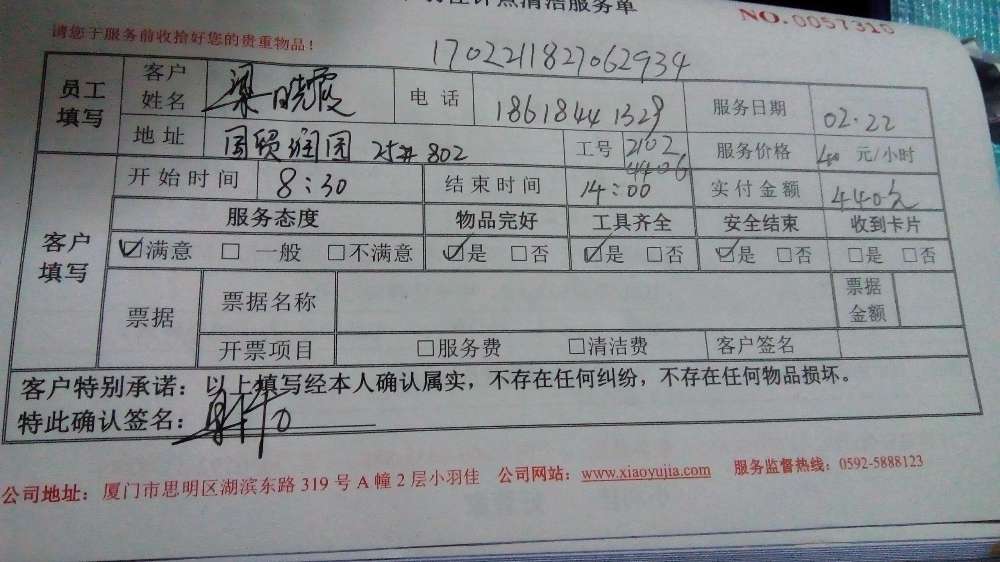 清洁服务单
NO.0057310
请您于服务前收拾好您的贵重物品！
1702211827062934
员工填写 客户姓名 梁晓霞 电话 18618441329 服务日期 02.22
地址 国贸润园 25# 802 工号 2102 4406 服务价格 40 元/小时
客户填写 开始时间 8:30 结束时间 14:00 实付金额 440元
服务态度 物品完好 工具齐全 安全结束 收到卡片
☑满意 □一般 □不满意 ☑是 □否 ☑是 □否 ☑是 □否 □是 □否
票据 票据名称 票据金额
开票项目 □服务费 □清洁费 客户签名
客户特别承诺：以上填写经本人确认属实，不存在任何纠纷，不存在任何物品损坏。
特此确认签名：
公司地址：厦门市思明区湖滨东路 319 号 A 幢 2 层小羽佳 公司网站：www.xiaoyujia.com 服务监督热线：0592-5888123